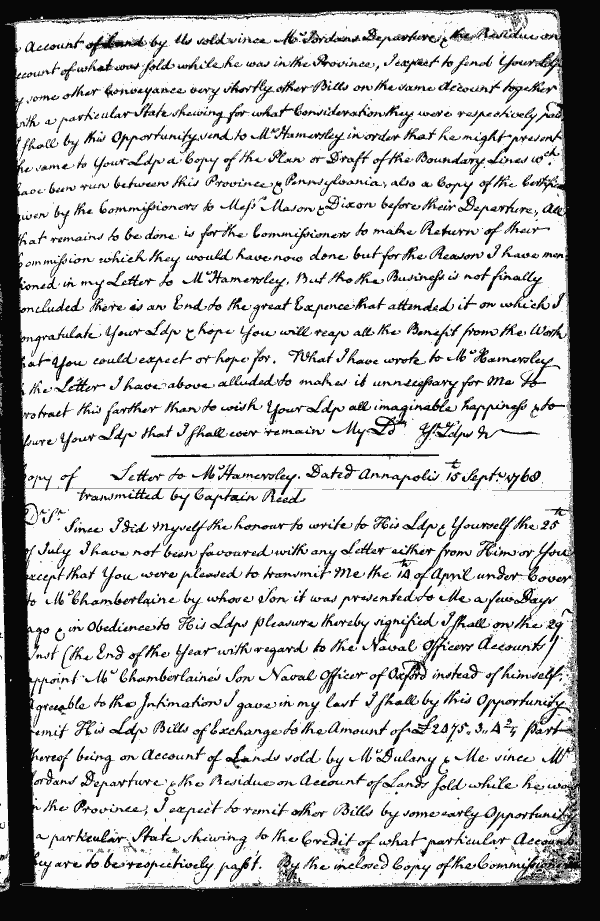 Account of Land by Us sold since Mr Jordans Departure, & the Residue on
ccount of what was sold while he was in the Province, I expect to send Your Ldp
y some other Conveyance very shortly other Bills on the same Account together
ith a particular State shewing for what Consideration they were respectively paid
shall by this Opportunity send to Mr Hamersley in order that he might present
he same to Your Ldp a Copy of the Plan or Draft of the Boundary Lines wch
have been run between this Province & Pennsylvania, also a Copy of the Certific
iven by the Commissioners to Messrs Mason & Dixon before their Departure, All
that remains to be done is for the Commissioners to make Return of their
ommission which they would have now done but for the Reason I have men
ioned in my Letter to Mr Hamersley. But tho the Business is not finally
oncluded there is an End to the great Expence that attended it on which I
ongratulate Your Ldp & hope You will reap all the Benefit from the Work
hat You could expect or hope for. What I have wrote to Mr Hamersley
the Letter I have above alluded to makes it unnecessary for Me to
rotract this farther than to wish Your Ldp all imaginable happiness & to
ssure Your Ldp that I shall ever remain My Ld Yr Ldps &c
opy of Letter to Mr Hamersley. Dated Annapolis 15th Septr 1768
transmitted by Captain Reed
Dr Sr
Since I did myself the honour to write to His Ldp & Yourself the 25th
of July I have not been favoured with any Letter either from Him or You
except that You were pleased to transmit Me the 14th of April under Cover
to Mr Chamberlaine by whose Son it was presented to Me a few Days
ago & in Obedience to His Ldps pleasure thereby signified I shall on the 29th
Inst (the End of the Year with regard to the Naval Officers Accounts)
appoint Mr Chamberlaines Son Naval Officer of Oxford instead of himself.
Agreeable to the Intimation I gave in my last I shall by this Opportunity
remit His Ldp Bills of Exchange to the Amount of £2475.. 3.. 4 2/4 Part
thereof being on Account of Lands sold by Mr Dulany & Me since Mr
Jordans Departure & the Residue on Account of Lands sold while he was
in the Province; I expect to remit other Bills by some early Opportunity
a particular State shewing to the Credit of what particular Accounts
they are to be respectively past. By the inclosed Copy of the Commissioners